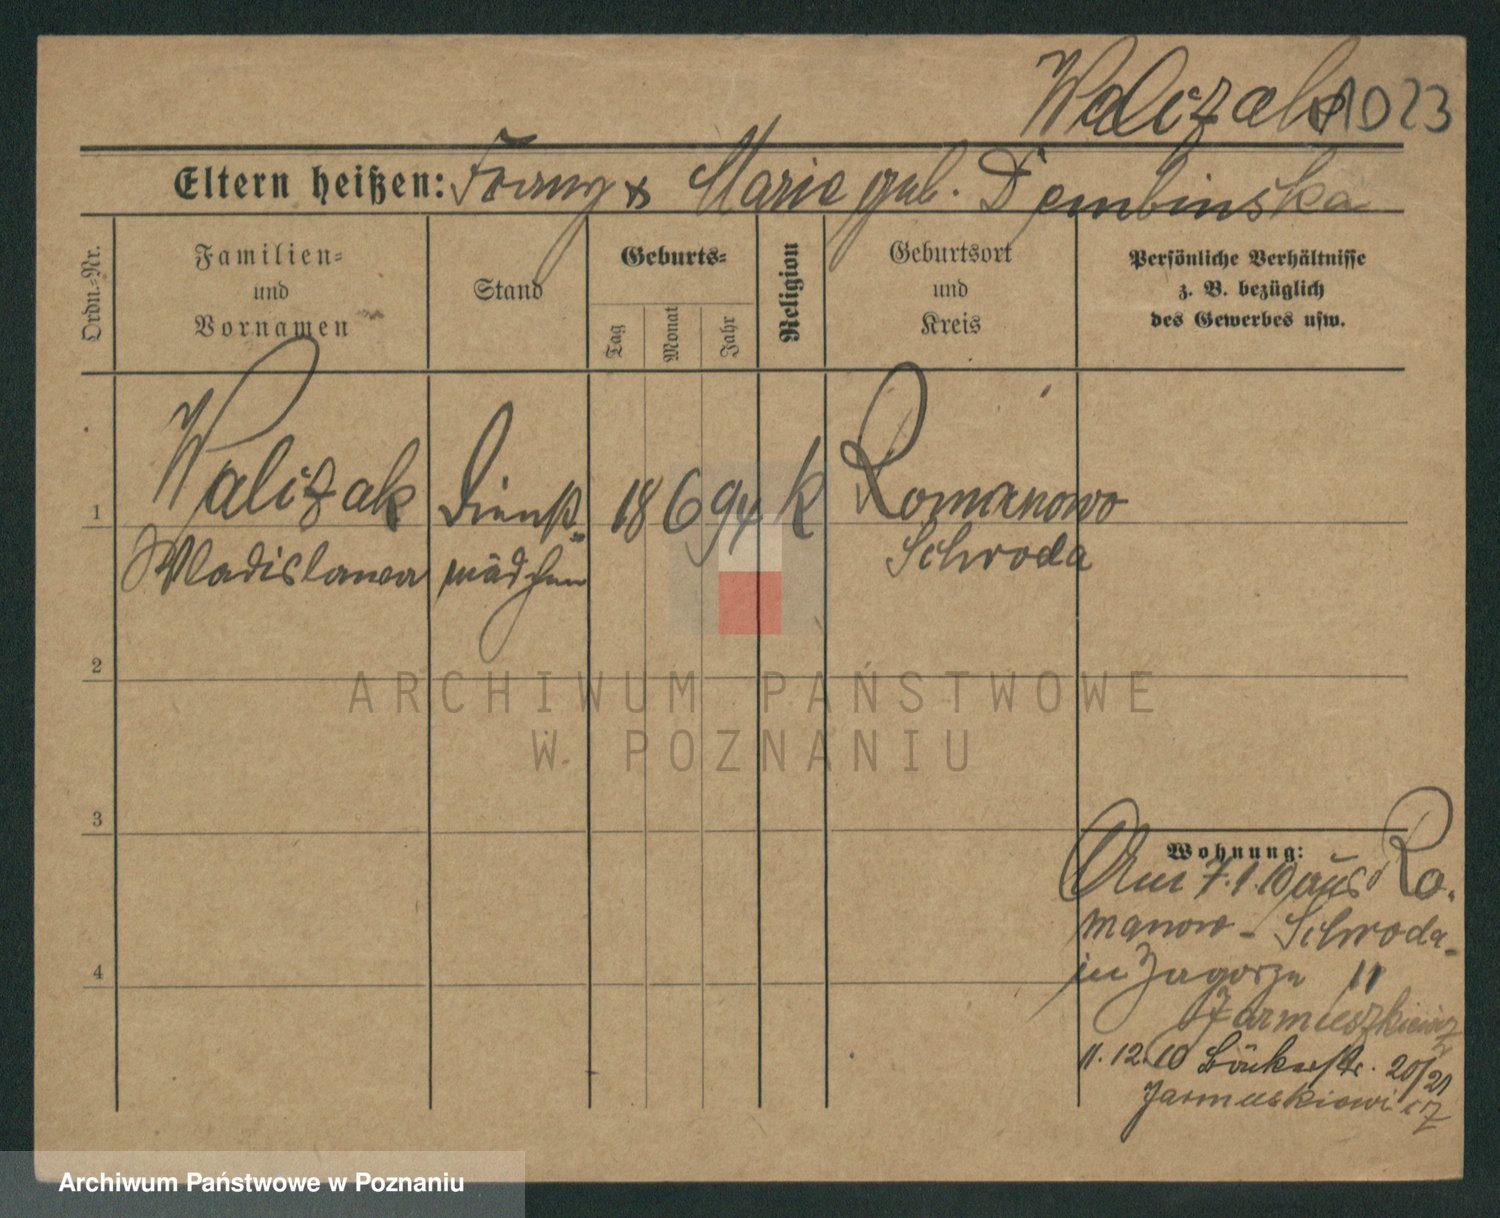 Walczak 1023
Eltern heißen: Franz & Marie geb. Dembinska
Ordn.-Nr.
Familien-
und
Vornamen
Stand
Geburts-
Tag
Monat
Jahr
Religion
Geburtsort
und
Kreis
Persönliche Verhältnisse
z. B. bezüglich
des Gewerbes usw.
1
Walczak Dienst- 18 6 94 k Romanowo
Wladislawa mädchen Schroda
2
3
4
Wohnung:
Am 7.1.10 aus Ro-
manowo - Schroda
in Zagorze 11
Jarmuszkiewicz
11.12.10 20/21
Jarmuskiewicz
ARCHIWUM PAŃSTWOWE
W POZNANIU
Archiwum Państwowe w Poznaniu